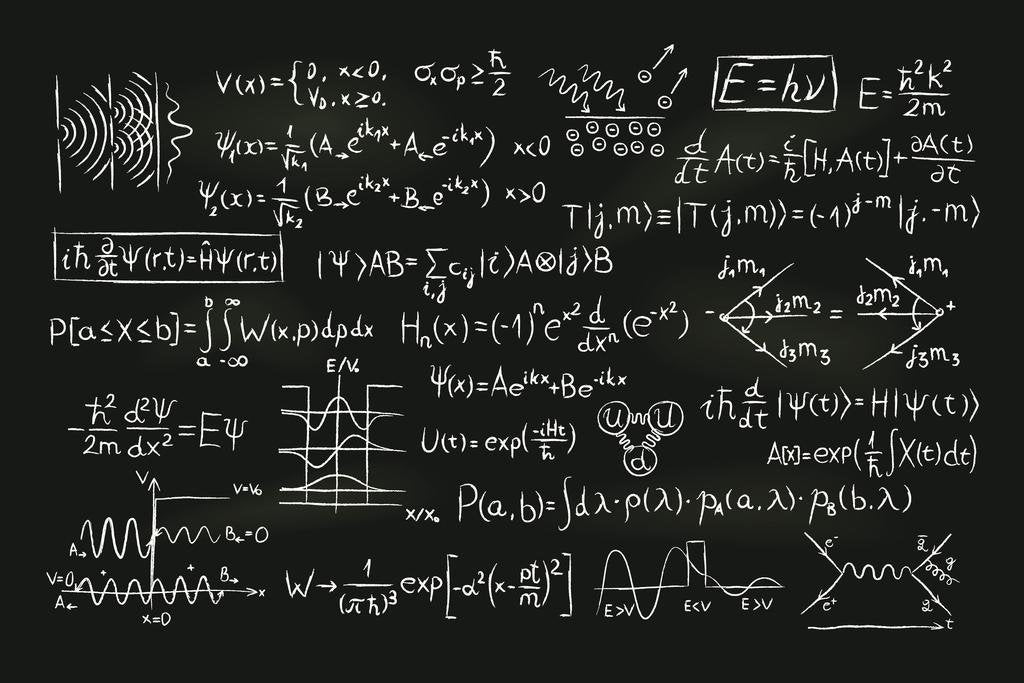 V(x)={0, x<0, V₀, x≥0.
σₓσₚ≥ħ/2
E=hν
E=ħ²k²/2m
Ψ₁(x)=1/√k₁(A→e^{ik₁x}+A←e^{-ik₁x}) x<0
d/dt A(t)=i/ħ[H,A(t)]+∂A(t)/∂t
Ψ₂(x)=1/√k₂(B→e^{ik₂x}+B←e^{-ik₂x}) x>0
T|j,m⟩≡|T(j,m)⟩=(-1)^{j-m}|j,-m⟩
iħ ∂/∂t Ψ(r,t)=ĤΨ(r,t)
|Ψ⟩AB=∑_{i,j} c_{ij}|i⟩A⊗|j⟩B
j₁m₁ j₁m₁
- j₂m₂ = j₂m₂ +
j₃m₃ j₃m₃
P[a≤X≤b]=∫_a^b ∫_{-∞}^{∞} W(x,p)dpdx
Hₙ(x)=(-1)ⁿe^{x²} d/dxⁿ(e^{-x²})
E/V₀
x/x₀
Ψ(x)=Ae^{ikx}+Be^{-ikx}
-ħ²/2m d²Ψ/dx²=EΨ
U(t)=exp(-iHt/ħ)
u u
d
iħ d/dt|Ψ(t)⟩=H|Ψ(t)⟩
A[x]=exp(1/ħ∫X(t)dt)
P(a,b)=∫dλ·ρ(λ)·p_A(a,λ)·p_B(b,λ)
V V=V₀
A→ B←=0
V=0 + + B→
A← x
x=0
W→1/(πħ)³ exp[-α²(x-pt/m)²]
E>V E<V E>V
e⁻ q̄
g
e⁺ q
t